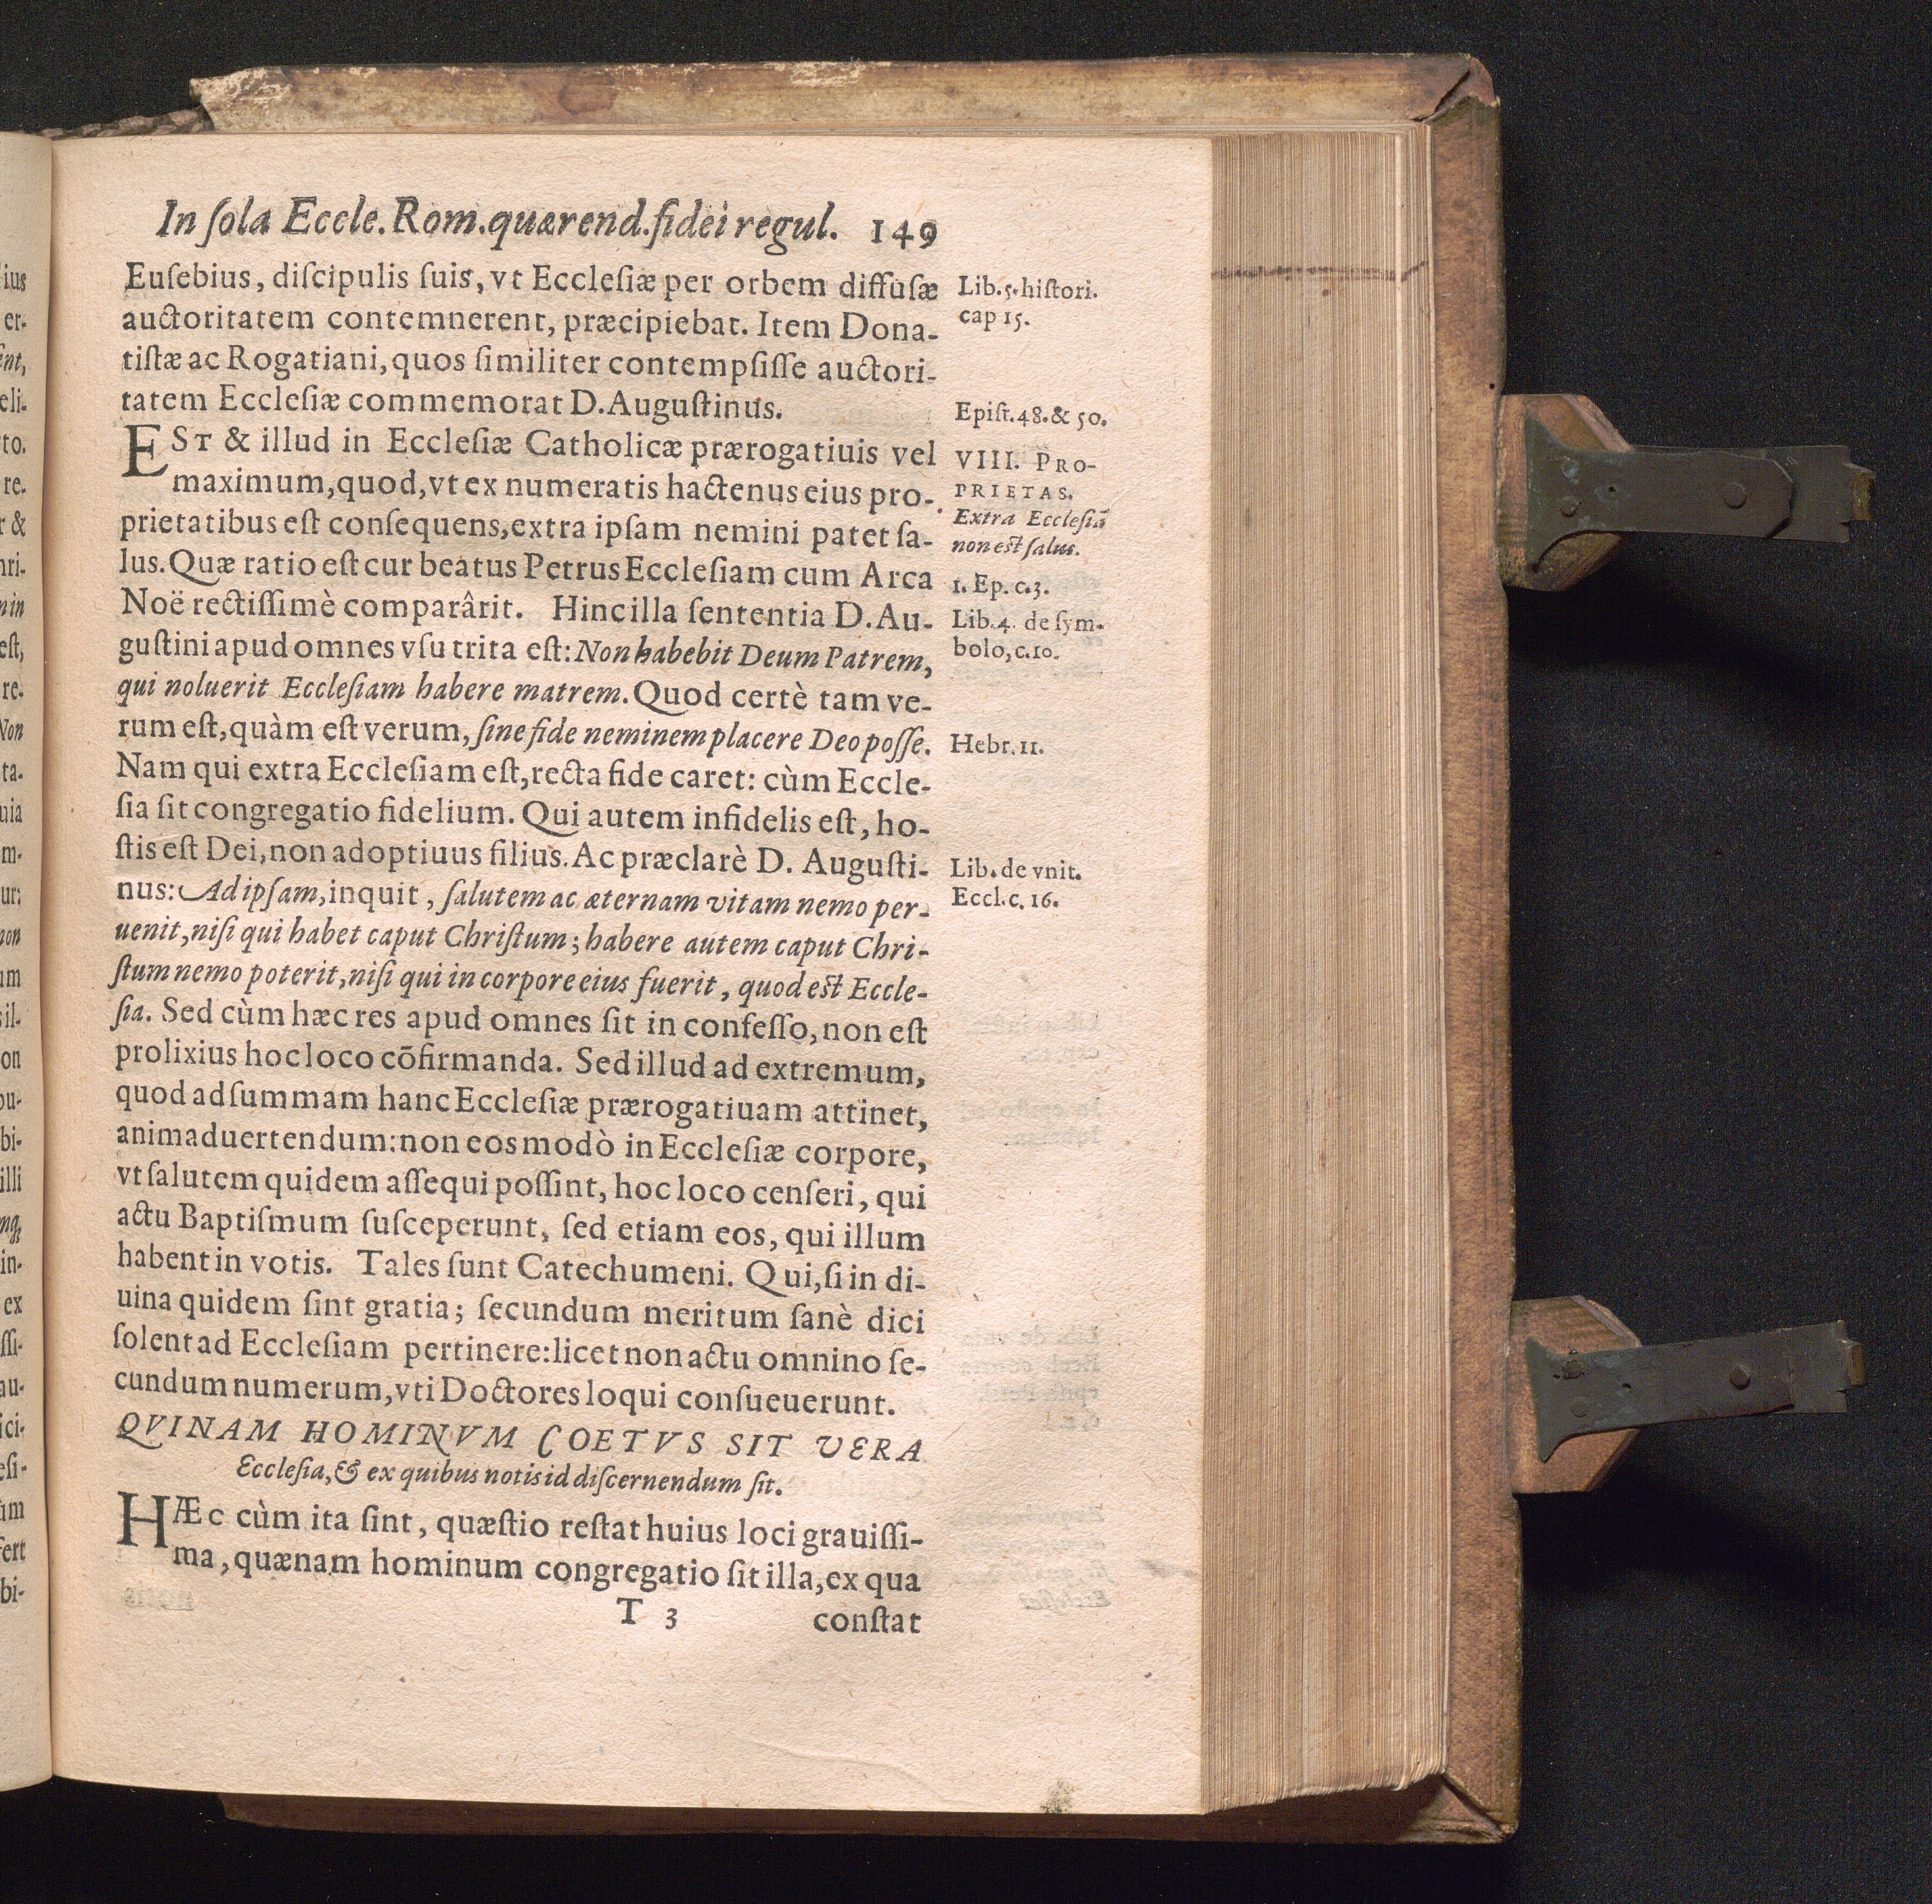 In ſola Eccle. Rom. quærend. fidei regul. 149
Euſebius, diſcipulis ſuis, vt Eccleſiæ per orbem diffuſæ
auctoritatem contemnerent, præcipiebat. Item Dona-
tiſtæ ac Rogatiani, quos ſimiliter contempſiſſe auctori-
tatem Eccleſiæ commemorat D. Auguſtinus.
EST & illud in Eccleſiæ Catholicæ prærogatiuis vel
maximum, quod, vt ex numeratis hactenus eius pro-
prietatibus eſt conſequens, extra ipſam nemini patet ſa-
lus. Quæ ratio eſt cur beatus Petrus Eccleſiam cum Arca
Noë rectiſſimè comparârit. Hinc illa ſententia D. Au-
guſtini apud omnes vſu trita eſt: Non habebit Deum Patrem,
qui noluerit Eccleſiam habere matrem. Quod certè tam ve-
rum eſt, quàm eſt verum, ſine fide neminem placere Deo poſſe.
Nam qui extra Eccleſiam eſt, recta fide caret: cùm Eccle-
ſia ſit congregatio fidelium. Qui autem infidelis eſt, ho-
ſtis eſt Dei, non adoptiuus filius. Ac præclarè D. Auguſti-
nus: Ad ipſam, inquit, ſalutem ac æternam vitam nemo per-
uenit, niſi qui habet caput Chriſtum; habere autem caput Chri-
ſtum nemo poterit, niſi qui in corpore eius fuerit, quod eſt Eccle-
ſia. Sed cùm hæc res apud omnes ſit in confeſſo, non eſt
prolixius hoc loco cõfirmanda. Sed illud ad extremum,
quod ad ſummam hanc Eccleſiæ prærogatiuam attinet,
animaduertendum: non eos modò in Eccleſiæ corpore,
vt ſalutem quidem aſſequi poſſint, hoc loco cenſeri, qui
actu Baptiſmum ſuſceperunt, ſed etiam eos, qui illum
habent in votis. Tales ſunt Catechumeni. Qui, ſi in di-
uina quidem ſint gratia; ſecundum meritum ſanè dici
ſolent ad Eccleſiam pertinere: licet non actu omnino ſe-
cundum numerum, vti Doctores loqui conſueuerunt.
QVINAM HOMINVM COETVS SIT VERA
Eccleſia, & ex quibus notis id diſcernendum ſit.
HÆc cùm ita ſint, quæſtio reſtat huius loci grauiſſi-
ma, quænam hominum congregatio ſit illa, ex qua
T 3 conſtat
Lib. 5. hiſtori.
cap 15.
Epiſt. 48. & 50.
VIII. PRO-
PRIETAS.
Extra Eccleſiã
non eſt ſalus.
1. Ep. c. 3.
Lib. 4. de ſym-
bolo, c. 10.
Hebr. 11.
Lib. de vnit.
Eccl. c. 16.